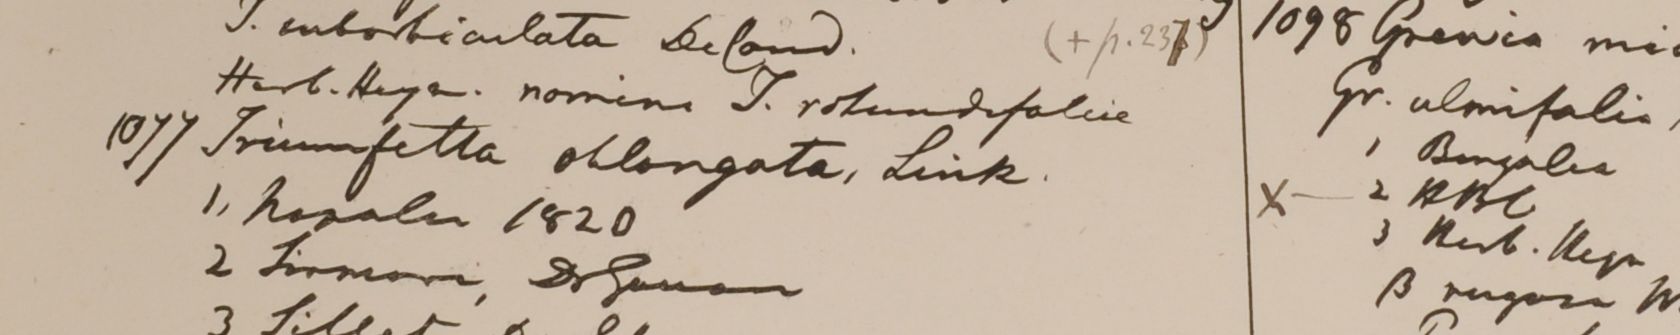 T. suborbiculata DeCand.
(+ p. 237)
Herb. Heyn. nomine T. rotundifoliae
1077 Triumfetta oblongata, Link.
1, Napalia 1820
2 Sirmore, Dr Govan
3 Sillet
1098 Grewia mic
Gr. ulmifolia,
1 Bengalia
X — 2 HBC
3 Herb. Heyn
β rugosa W